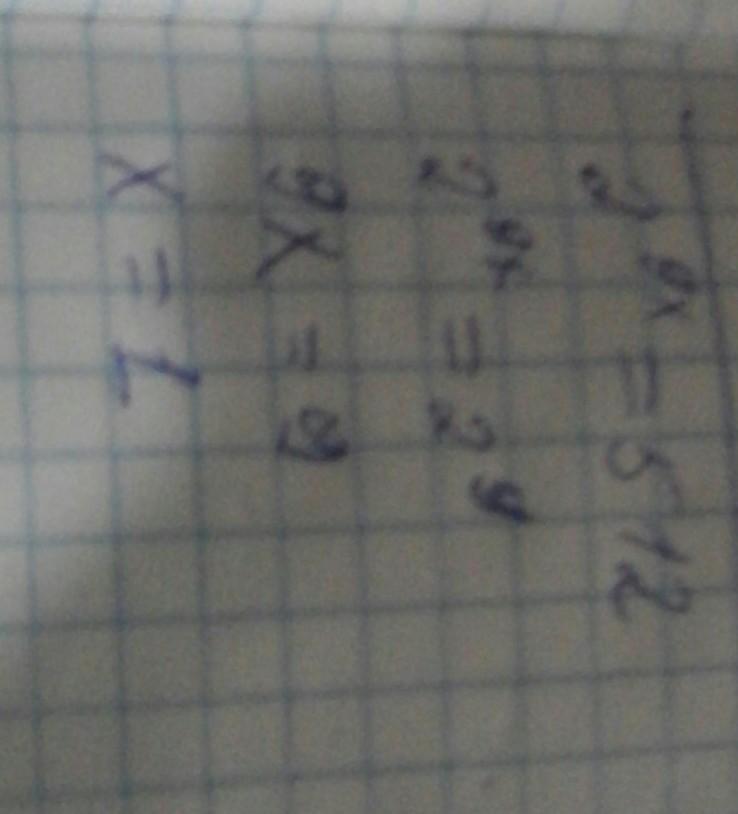 2^9x = 512
2^9x = 2^9
9x = 9
x = 1